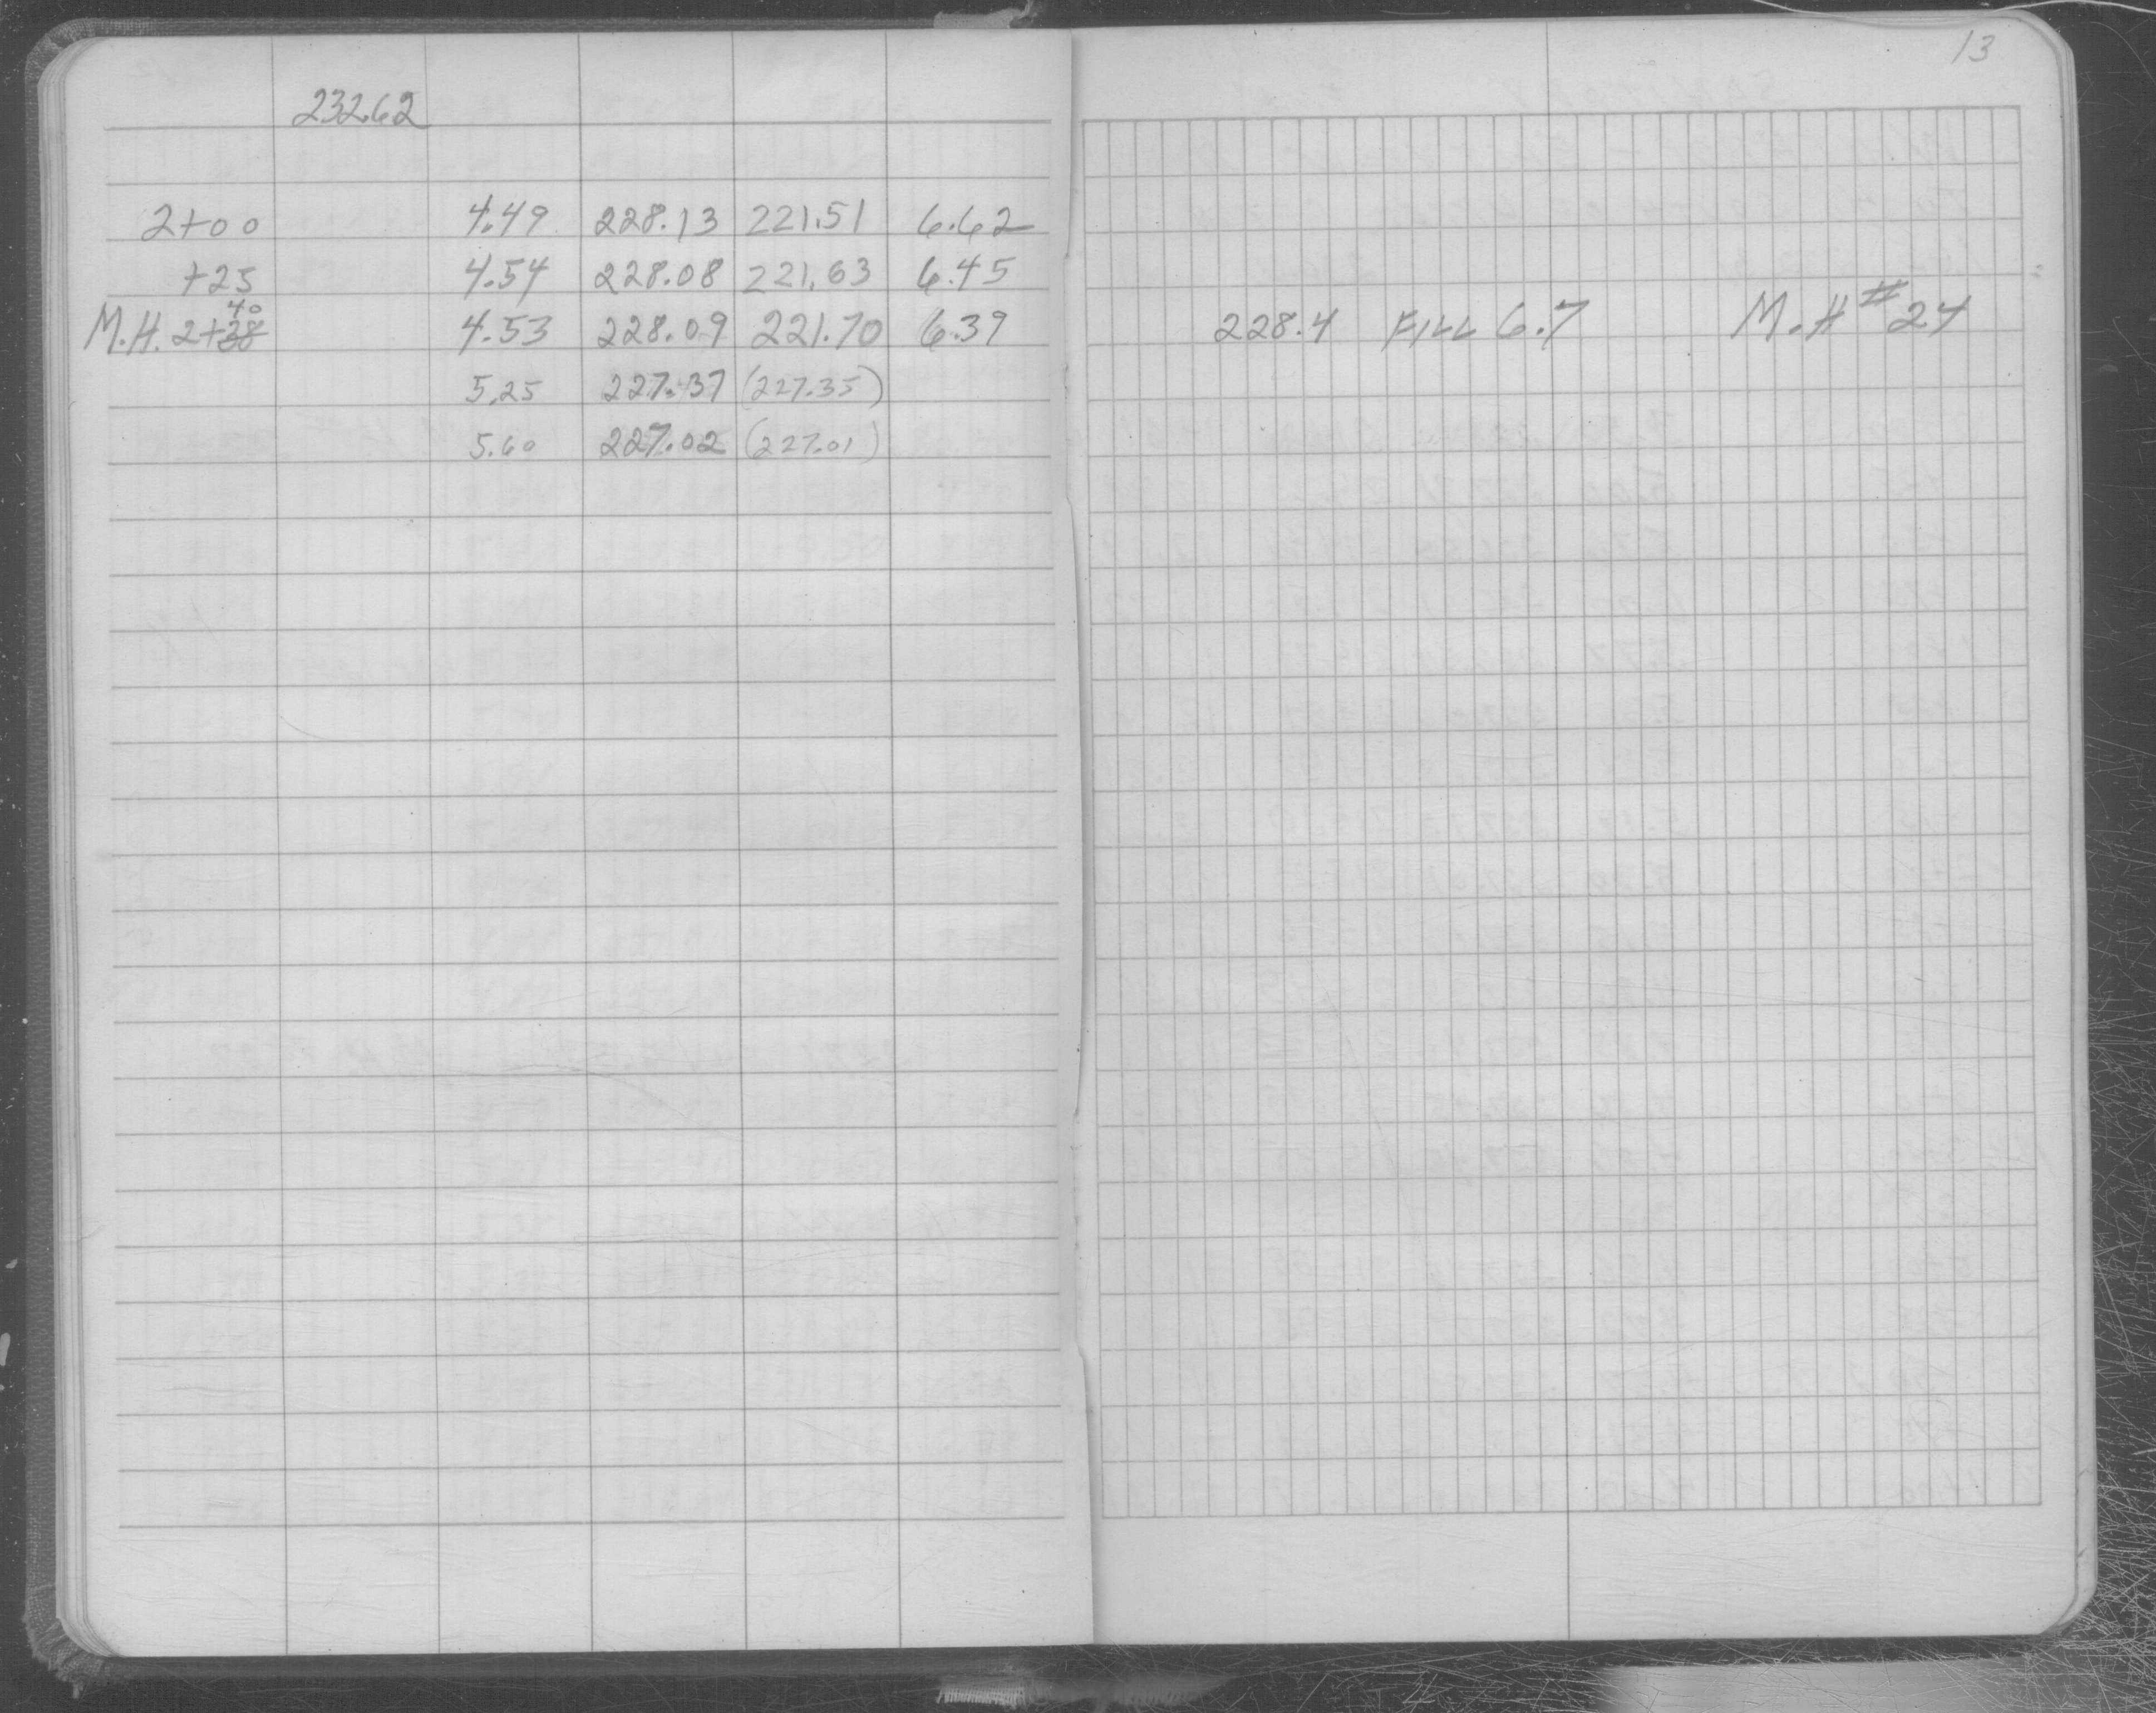 13
232.62
2+00 4.49 228.13 221.51 6.62
+25 4.54 228.08 221.63 6.45
40
M.H. 2+38 4.53 228.09 221.70 6.39 228.4 FILL 6.7 M.H #24
5.25 227.37 (227.35)
5.60 227.02 (227.01)